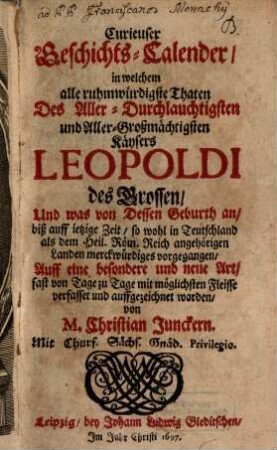 ad P P Franciscanos Monachij
Curieuser
Geschichts-Calender/
in welchem
alle ruhmwürdigste Thaten
Des Aller-Durchlauchtigsten
und Aller-Großmächtigsten
Käysers
LEOPOLDI
des Grossen/
Und was von Dessen Geburth an/
biß auff ietzige Zeit/ so wohl in Teutschland
als dem Heil. Röm. Reich angehörigen
Landen merckwürdiges vorgegangen/
Auff eine besondere und neue Art/
fast von Tage zu Tage mit möglichsten Fleisse
verfasset und auffgezeichnet worden/
von
M. Christian Junckern.
Mit Churf. Sächs. Gnäd. Privilegio.
Leipzig/ bey Johann Ludwig Gleditschen/
Im Jahr Christi 1697.